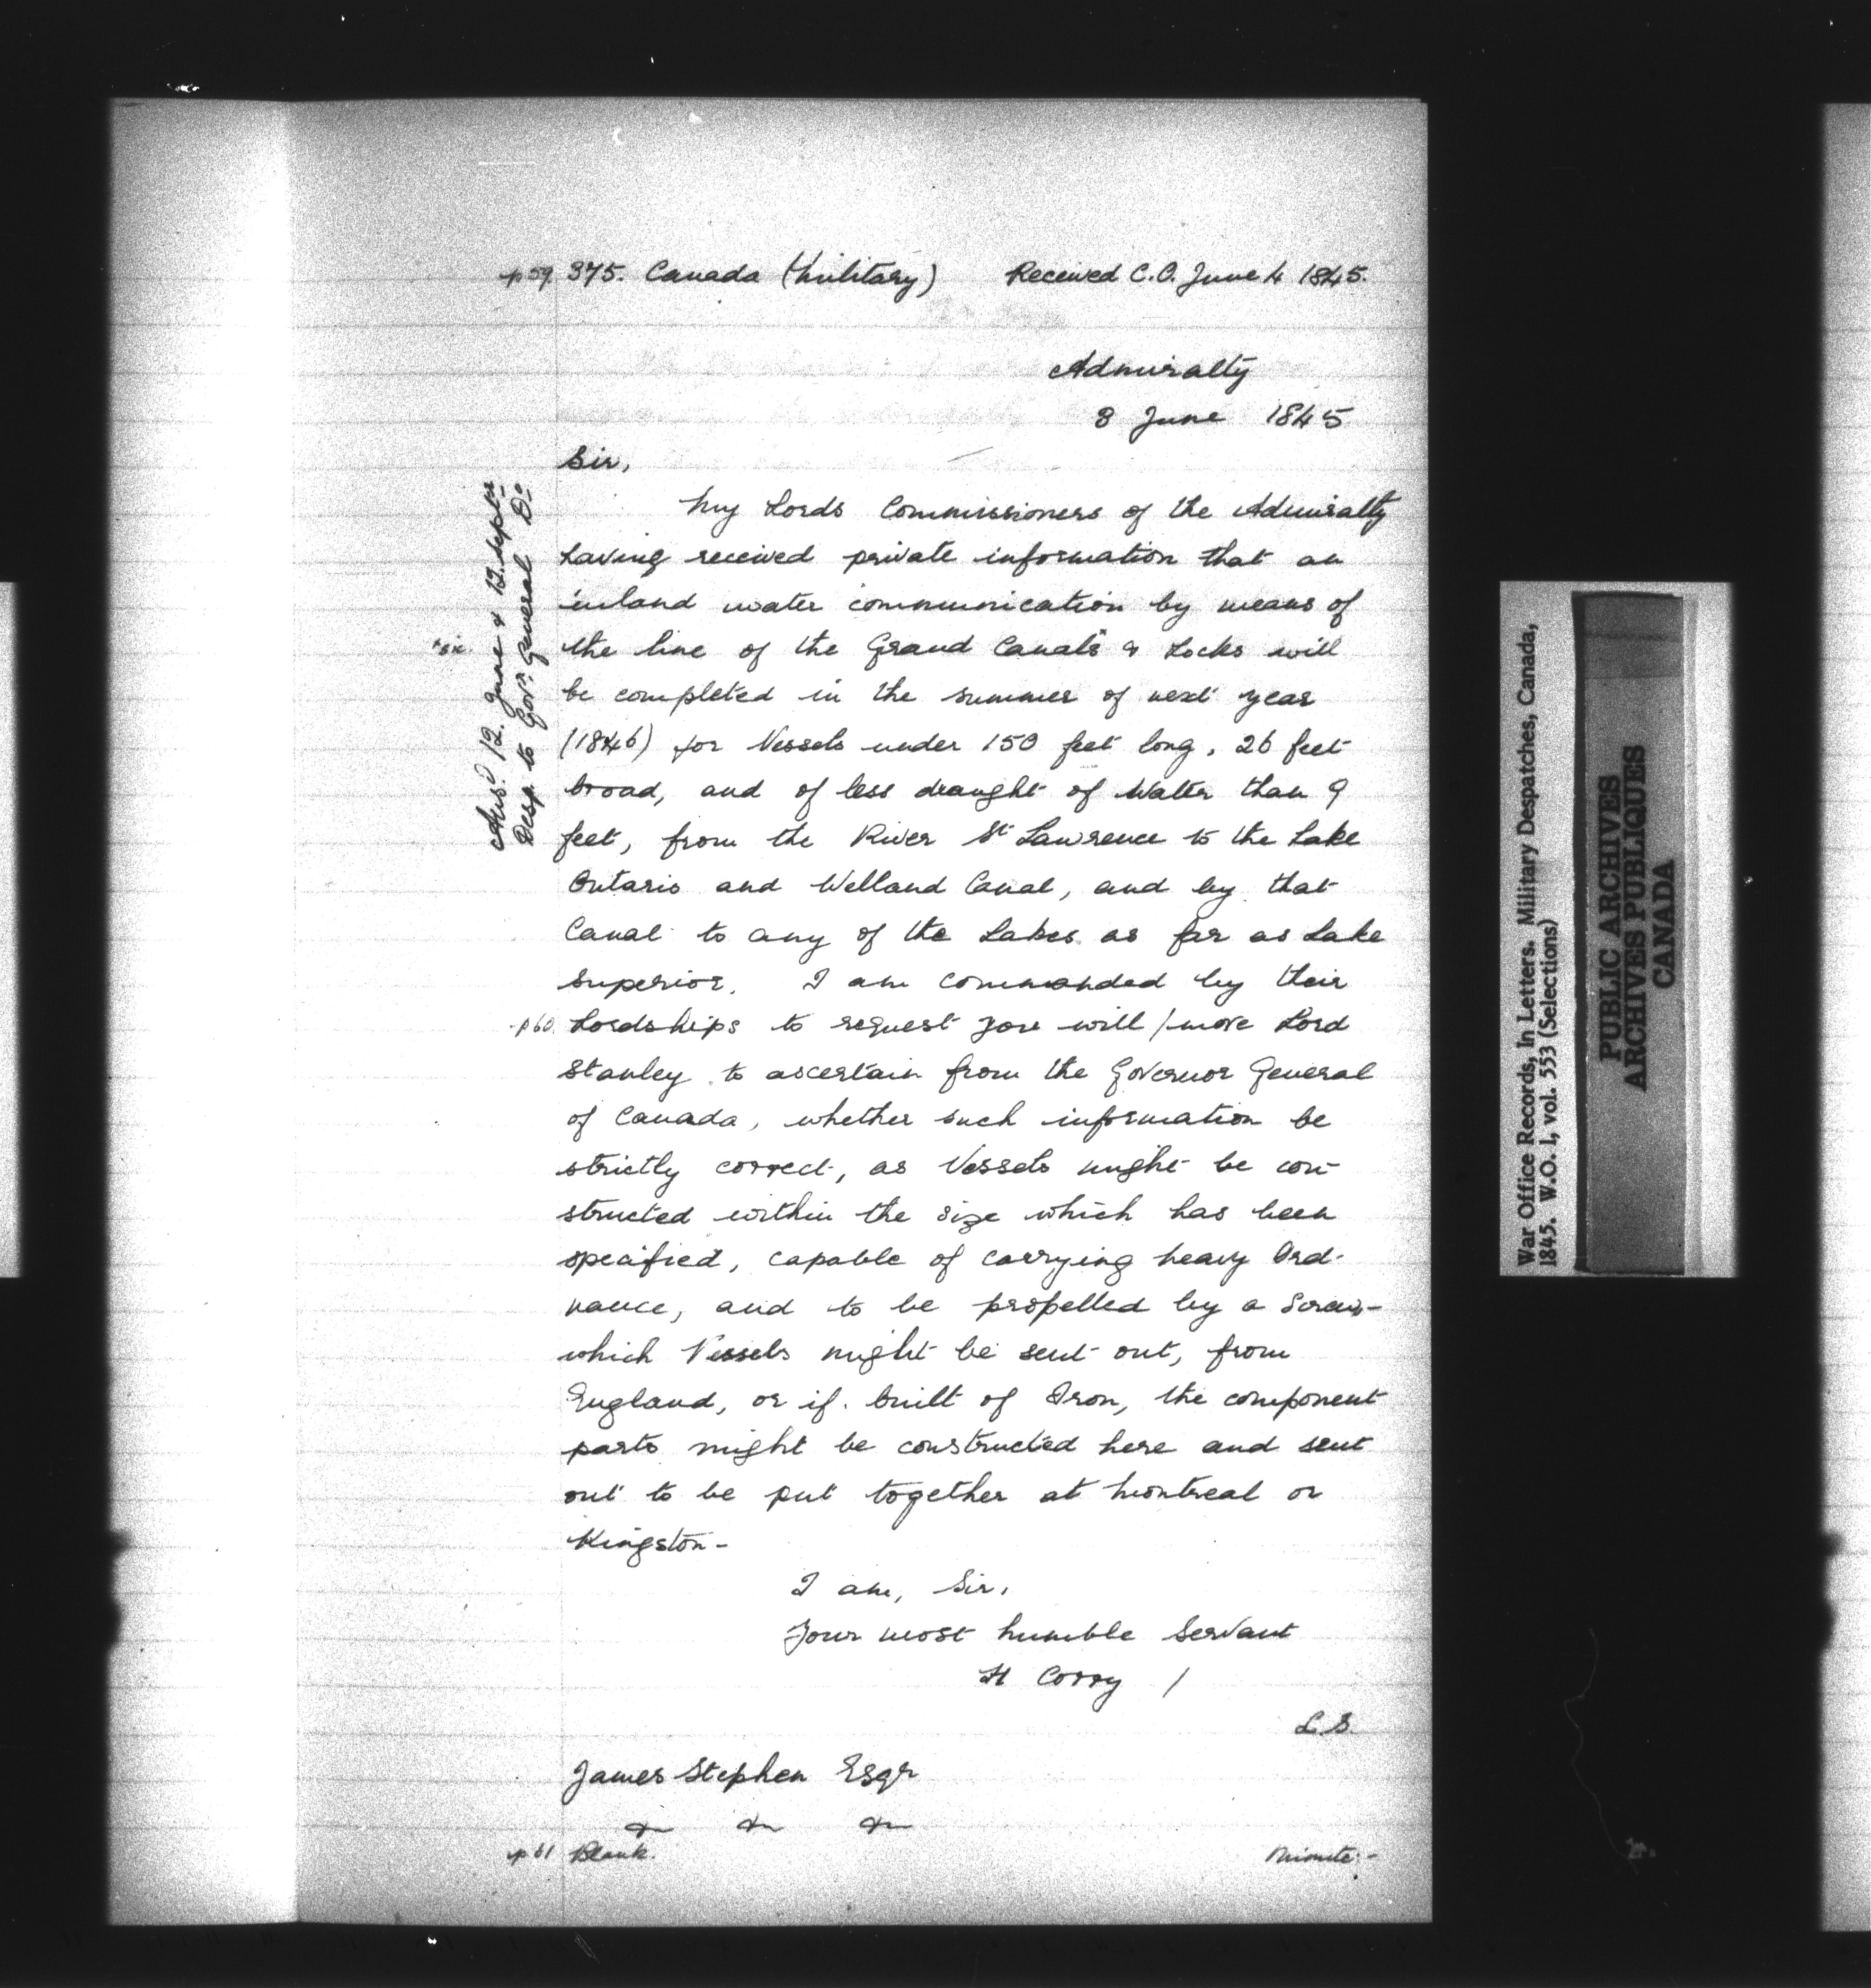 p 59. 375. Canada (Military) Received C.O. June 4 1845.
Admiralty
3 June 1845
Sir,
My Lords Commissioners of the Admiralty
having received private information that an
inland water communication by means of
*sic. the line of the Grand Canals* & Locks will
be completed in the summer of next year
(1846) for Vessels under 150 feet long, 26 feet
broad, and of less draught of Watter than 9
feet, from the River St Lawrence to the Lake
Ontario and Welland Canal, and by that
Canal to any of the Lakes as far as Lake
Superior. I am commanded by their
p 60. Lordships to request you will / move Lord
Stanley to ascertain from the Governor General
of Canada, whether such information be
strictly correct, as Vessels might be con-
structed within the size which has been
specified, capable of carrying heavy Ord-
nance, and to be propelled by a Screw-
which Vessels might be sent out, from
England, or if built of Iron, the component
parts might be constructed here and sent
out to be put together at Montreal or
Kingston-
I am, Sir,
Your most humble Servant
H Corry /
L.S.
James Stephen Esqr
&c &c &c
p 61 Blank. Minute:-
Ansd 12. June & 12. Septr
Desp. to Govr. General Do
War Office Records, In Letters. Military Despatches, Canada,
1845. W.O. 1, vol. 553 (Selections)
PUBLIC ARCHIVES
ARCHIVES PUBLIQUES
CANADA